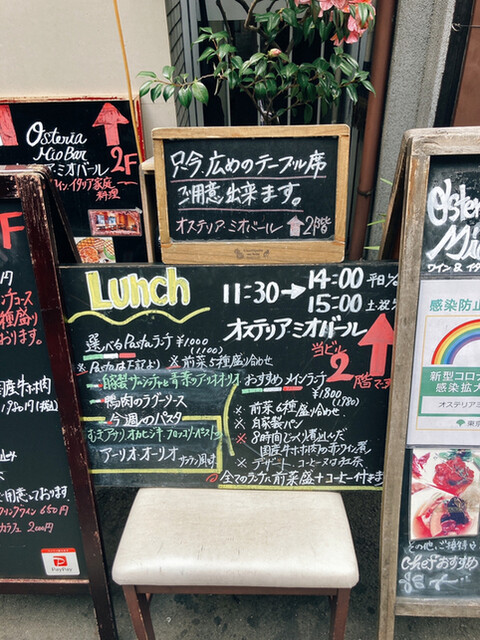 Osteria
Mio Bar
オステリア・ミオバール
ワイン、イタリア家庭
料理
2F
只今、広めのテーブル席
ご用意出来ます。
オステリア ミオバール ↑ 2階
Lunch
11:30→14:00 平日
15:00 土・祝
オステリア・ミオバール
当ビル
2
階です
選べるPastaランチ ¥1000
(1100)
※Pastaは下記より ※前菜5種盛り合わせ
自家製サルシッチャと青菜のアーリオオーリオ
鴨肉のラグーソース
今週のパスタ
アーリオオーリオ
おすすめメインランチ
¥1800
(1980)
※前菜6種盛り合わせ
※自家製パン
※8時間じっくり煮込んだ
国産牛ホホ肉の赤ワイン煮
※デザート、コーヒー又は紅茶
全てのランチに前菜盛+コーヒー付きます
F
種盛り
おります。
産牛ホホ肉
1980円(税込)
用意しております
650円
カラフェ 2000円
PayPay
Oster
Mi
ワイン & イタ
感染防止
新型コロナ
感染拡大
オステリアミオ
東京
その他、ご接待
Chefおすすめ